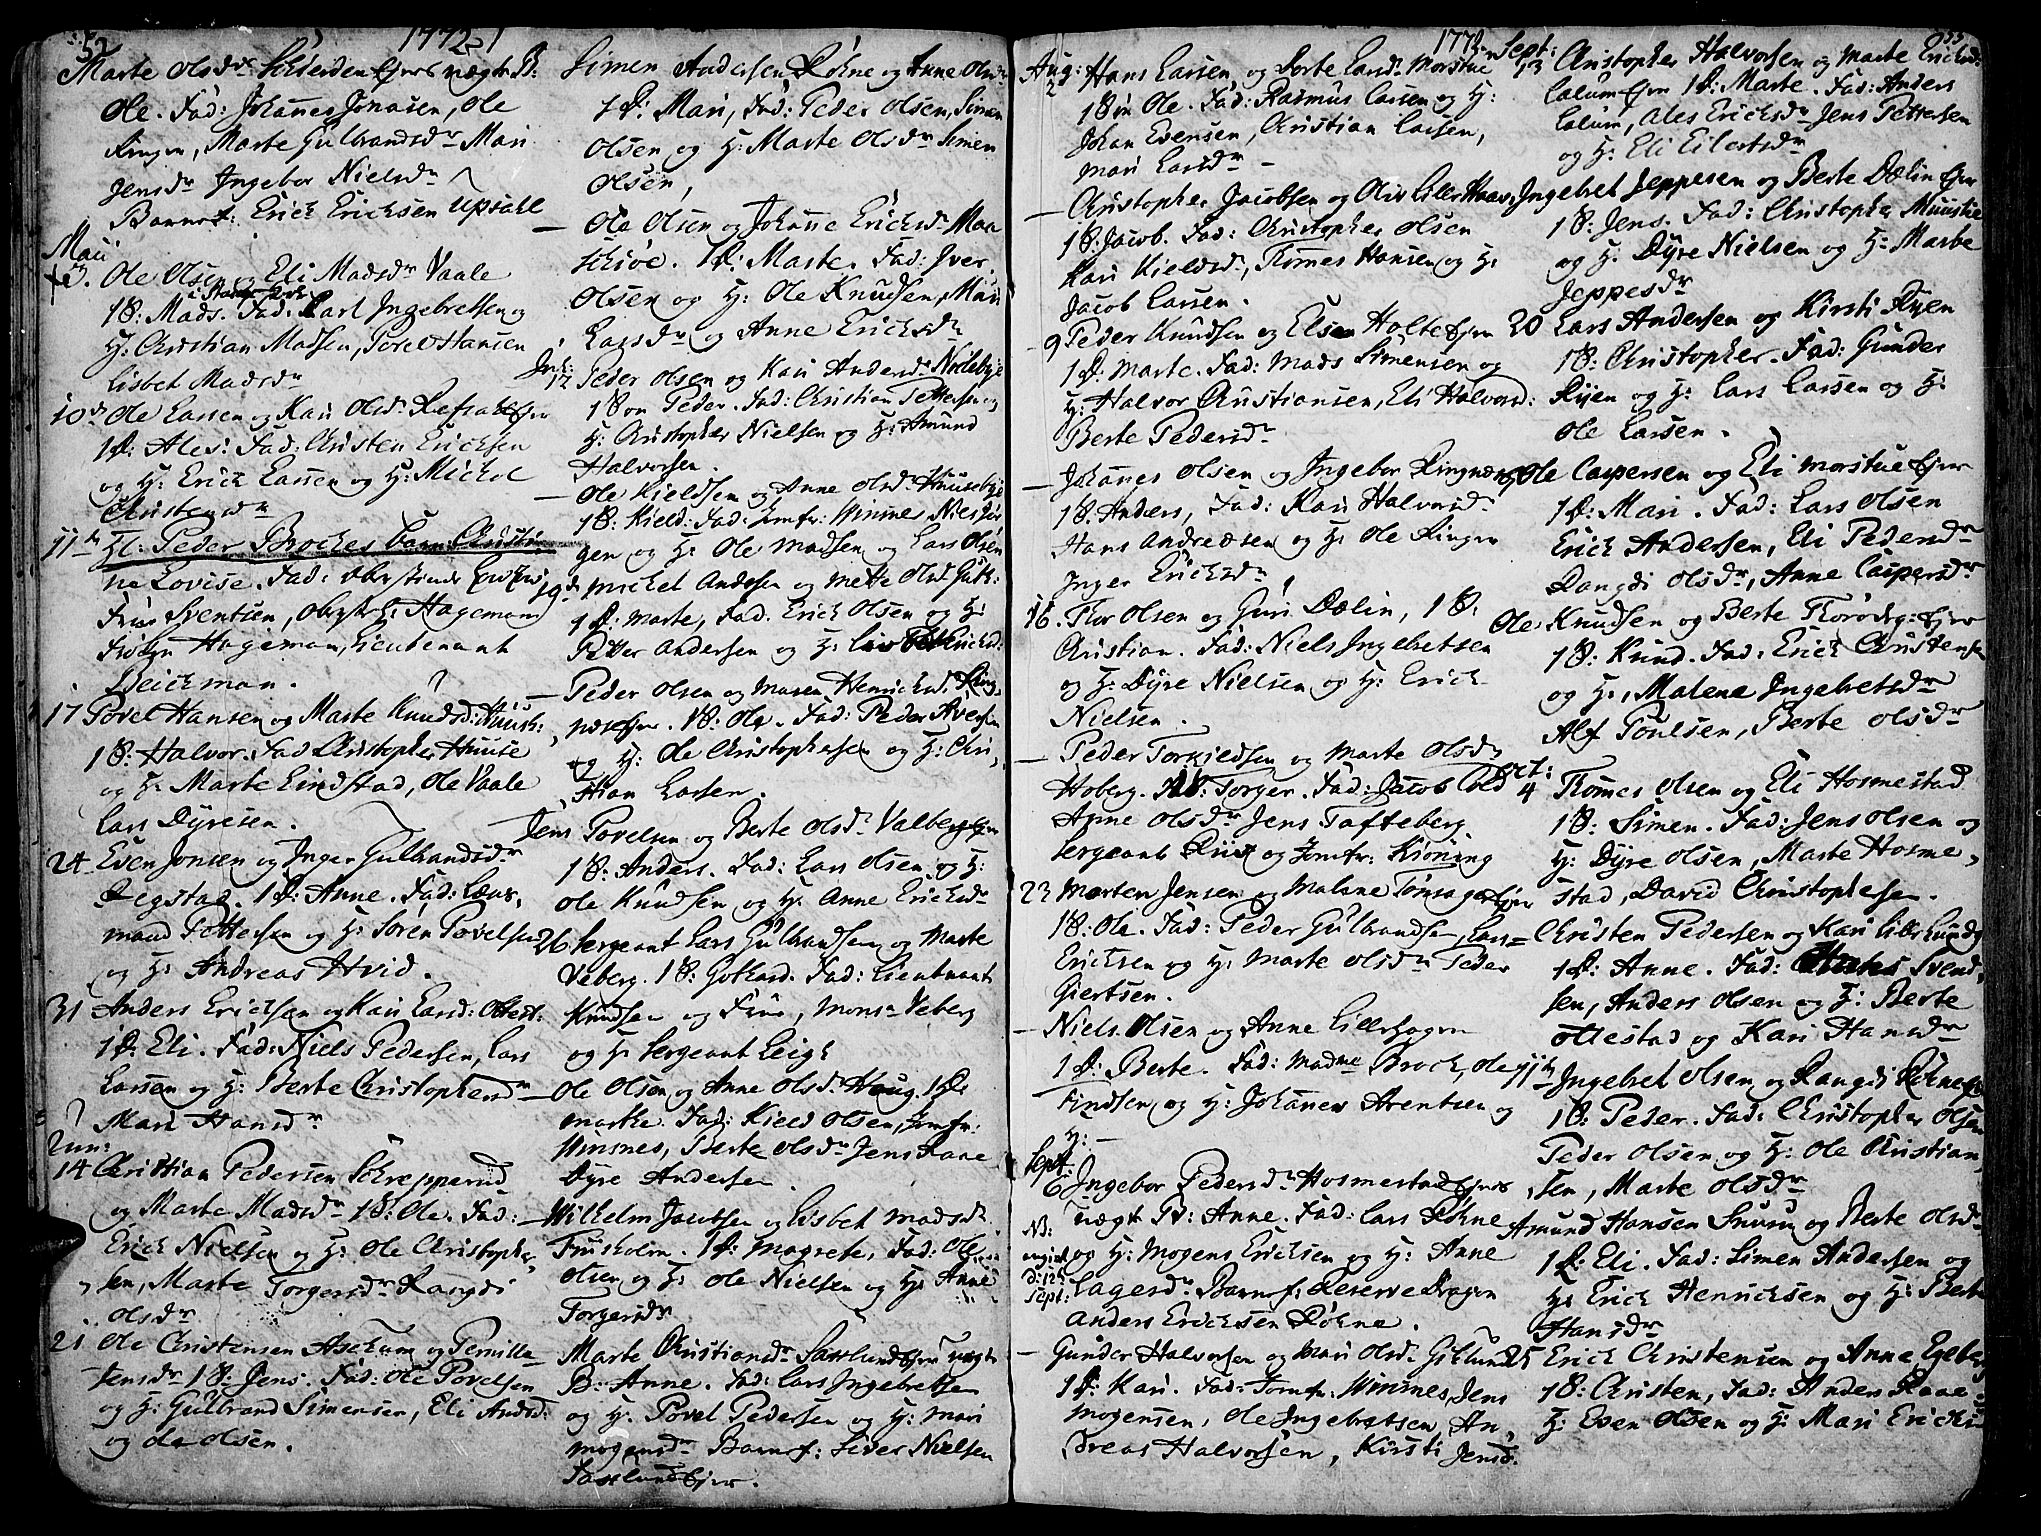 52
1772
Marte Olsdr Schierden Ejer uægte B:
Ole. Fad: Johannes Jonasen, Ole
Ringen, Marte Gulbrandsdr Mari
Jensdr Ingebor Nielsdr
Barnef: Erick Ericksen Upsall
Maii
3. Ole Olsen og Eli Madsdr Vaale
1 S: Mads. Fad: Carl Ingebretsen og
H: Christian Madsen, Povel Hansen
Lisbet Madsdr
10 Ole Larsen og Kari Olsdr Refsal Ejer
1 D: Ales: Fad: Christen Ericksen
og H: Erick Larsen og H: Mickel
Christensdr
11 Hr: Peder Brochs barn Christi-
ne Lovise. Fad:
Frue Sventsen, Hageman
Frøken Hageman, Lieutenant
Deickman.
17 Povel Hansen og Marte Knudsd:
1 S: Halvor. Fad Christopher Huuse
og H: Marte Lindstad, Ole Vaale
Lars Dyresen.
24 Even Jonsen og Inger Gulbrandsdr
Degstad. 1 D: Anne. Fad:
mand Pettersen og H: Søren Povelsen
og H: Andreas Hvid.
31 Anders Ericksen og Kari Larsd: Ottest:
1 D: Eli. Fad: Niels Pedersen, Lars
Larsen og H: Berte Christophersdr
Mari Hansdr
Jun:
14 Christian Pedersen Schrepperud
og Marte Madsdr 1 S: Ole. Fad:
Erick Nielsen og H: Ole Christopher
sen, Marte Torgersdr Rangdi
Olsdr
21. Ole Christensen Aschum og Pernille
Jensdr 1 S: Jens. Fad: Ole Povelsen
og H: Gulbrand Simensen, Eli Andsd:
og Ole Olsen.
Simen Andersen Røhne og Anne Olsdr
1 D: Mari, Fad: Peder Olsen, Simen
Olsen og H: Marte Olsdr Simen
Olsen,
— Ole Olsen og Johanne Ericksdr Maa
schiøe. 1 D: Marte. Fad: Iver
Olsen og H: Ole Knudsen, Mari
Larsdr og Anne Ericksdr
12 Peder Olsen og Kari Andersdr Nordbye
1 Søn Peder. Fad: Christian Pettersen og
H: Christopher Nielsen og H: Amund
Halvorsen.
— Ole Kieldsen og Anne Olsdr Huusebye
1 S: Kield. Fad: Jomfr: Winsnes Niels Jør
gen og H: Ole Madsen og Lars Olsen
19 Mickel Andersen og Mette Olsd
1 D: Marte, Fad: Erick Olsen og H:
Petter Andersen og H:
— Peder Olsen og Maren Henricksd. Ring
næs Ejer. 1 S: Ole. Fad: Peder Iversen
og H: Ole Christophersen og H: Chri
stian Larsen.
Jens Povelsen og Berte Olsdr Valberg Ejer
1 S: Anders. Fad: Lars Olsen og H:
Ole Knudsen og H: Anne Ericksdr
26 Sergeant Lars Gulbrandsen og Marte
Veberg. 1 S: Gothard. Fad: Lieutnant
Knudsen og Frue, Monsr Veberg
og H: Sergeant Leigh
— Ole Olsen og Anne Olsdr Haug. 1 D:
Marthe. Fad: Kield Olsen, Jomfr:
Winsnes, Berte Olsdr Jens Raae
Dyre Andersen.
— Wilhelm Jacobsen og Lisbet Madsdr
Frusholm. 1 D: Magrete, Fad: Ole
Olsen og H: Ole Nielsen og H: Anne
Torgersdr
Marte Christiansdr Saxlund Ejer uægte
B: Anne. Fad: Lars Ingebretsen
og H: Povel Pedersen og H: Mari
Mogensdr Barnef: Siver Nielsen
Saxlund Ejer.
1772
Aug: 2 Hans Larsen og Dorte Larsdr Morstue
1 Søn Ole. Fad: Rasmus Larsen og H:
Johan Evensen, Christian Larsen,
Mari Larsdr —
— Christopher Jacobsen og Oliv Lille Haave
1 S: Jacob. Fad: Christopher Olsen
Kari Kieldsdr, Thomes Hansen og H:
Jacob Larsen.
9 Peder Knudsen og Else Holte Ejer
1 D: Marte. Fad: Mads Simensen og
H: Halvor Christiansen, Eli Halvorsd:
Berte Pedersdr
— Johannes Olsen og Ingebor Ringnæs
1 S. Anders, Fad: Kari Halvorsdr
Hans Andreasen og H: Ole Ringen
Inger Ericksdr
16. Thor Olsen og Guri Dælin, 1 S:
Christian. Fad: Niels Ingebretsen
og H: Dyre Nielsen og H: Erick
Nielsen.
— Peder Torkieldsen og Marte Olsdr
Hoberg. 1 S: Torger. Fad: Jacob Cold
Anne Olsdr Jens Tofteberg
Sergeant Riis og Jomfr: Krøning
23 Morten Jensen og Malene Tønsager Ejer
1 S: Ole. Fad: Peder Gulbrandsen, Lars
Ericksen og H: Marte Olsdr Peder
Giertsen.
— Niels Olsen og Anne Lillehagen
1 D: Berte. Fad: Madme Broch, Ole
Findsen og H: Johannes Arentsen og
H: —
Sept: 6 Ingebor Pedersdr Hosmestad Ejer
uægt D: Anne. Fad: Lars Røhne
og H: Mogens Ericksen og H: Anne
Lagesdr Barnef: Reserve Dragon
Anders Ericksen Røhne.
NB:
d: 12
Sept:
— Gunder Halvorsen og Mari Olsdr Giklund
1 D: Kari. Fad: Jomfr: Winsnes, Jens
Mogensen, Ole Ingebretsen, An
dreas Halvorsen, Kirsti Jensd.
53
Sept: 13 Christopher Halvorsen og Marte Ericksd:
Lalum Ejer 1 D: Marte. Fad: Anders
Lalum, Ales Ericksdr Jens Pettersen
og H: Eli Eilertsdr
Ingebret Jeppesen og Berte Dælin Ejer
1 S: Jens. Fad: Christopher Muustue
og H: Dyre Nielsen og H: Marte
Jeppesdr
20 Lars Andersen og Kirsti Ryen
1 S: Christopher. Fad: Gunder
Ryen og H: Lars Larsen og H:
Ole Larsen.
Ole Caspersen og Eli Morstue Ejer
1 D: Mari. Fad: Lars Olsen
Erick Andersen, Eli Pedersdr
Rangdi Olsdr, Anne Caspersdr
Ole Knudsen og Berte Ejer
1 S: Knud. Fad: Erick Christensen
og H:, Malene Ingebretsdr
Alf Poulsen, Berte Olsdr
Oct: 4 Thomes Olsen og Eli Hosmestad
1 S: Simen. Fad: Jens Olsen og
H: Dyre Olsen, Marte Hosme
stad, David Christophersen.
Christen Pedersen og Kari Lille Lunds
1 D: Anne. Fad: Svend
sen, Anders Olsen og H: Berte
Ottestad og Kari Hansdr
11 Ingebret Olsen og Rangdi Røhne Ejer
1 S: Peder. Fad: Christopher Olsen
Peder Olsen og H: Ole Christian
sen, Marte Olsdr
Amund Hansen Snuru og Berte Olsdr
1 D: Eli. Fad: Simen Andersen og
H: Erick Henricksen og H: Berte
Hansdr
25 Erick Christensen og Anne Egeberg
1 S: Christen, Fad: Anders Raae
H: Even Olsen og H: Mari Ericks